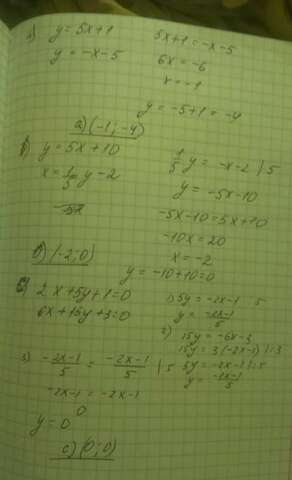 а) y = 5x+1
y = -x-5
5x+1 = -x-5
6x = -6
x = -1
y = -5+1 = -4
а) (-1; -4)
б) y = 5x+10
x = 1/5 y - 2
1/5 y = -x-2 | 5
y = -5x-10
-5x-10 = 5x+10
-10x = 20
x = -2
y = -10+10 = 0
б) (-2; 0)
с) 2x+5y+1=0
6x+15y+3=0
1) 5y = -2x-1 5
y = -2x-1/5
2) 15y = -6x-3
15y = 3(-2x-1) :3
5y = -2x-1 :5
y = -2x-1/5
3) -2x-1/5 = -2x-1/5 | 5
-2x-1 = -2x-1
0
y = 0
с) (0; 0)